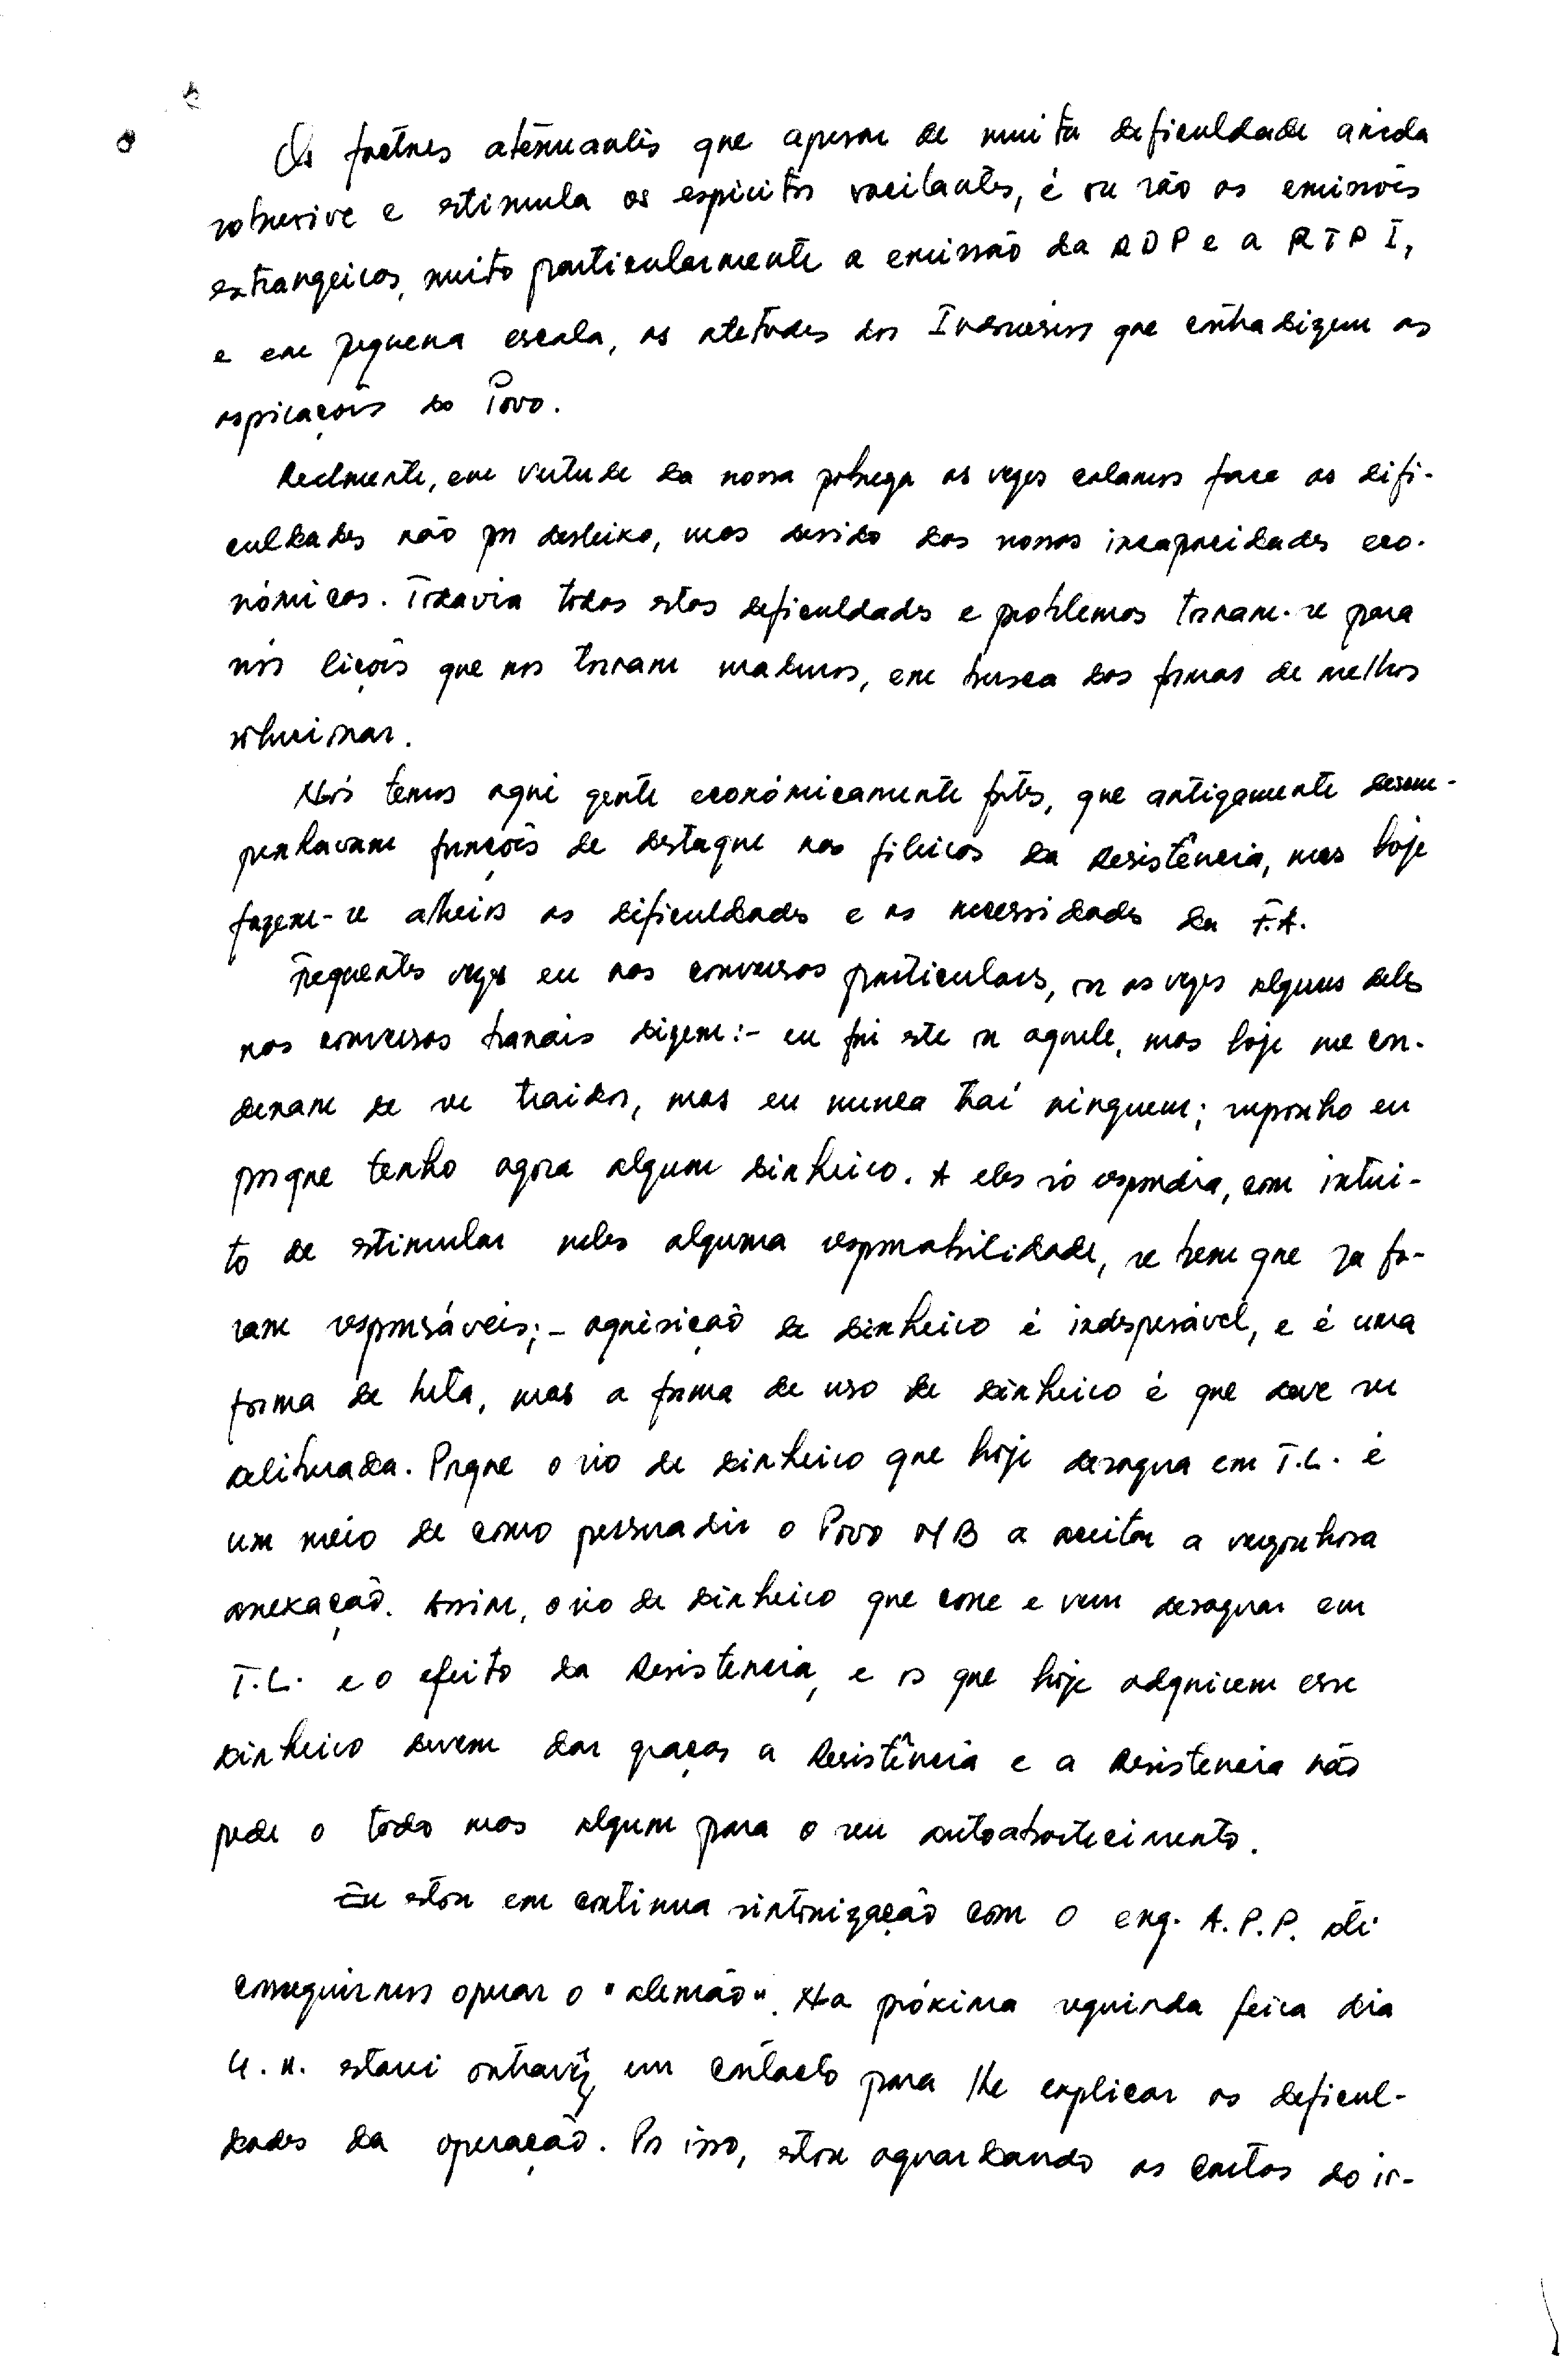 Os factores atenuantes que apesar de muita deficuldade ainda
sobrevive e estimula os espiritos vacilantes, é ou são as emissões
extrangeiras, muito particularmente a emissão da RDP e a RTPI,
e em pequena escala, as atetudes dos Invasores que contradizem as
aspirações do Povo.
Realmente, em vertude da nossa pobreza as vezes calamos face as difi-
culdades não por desleixo, mas devido das nossas incapacidades eco-
nómicas. Todavia todas estas deficuldades e problemas tornam-se para
nós lições que nos tornam maduros, em busca das formas de melhor
solucionar.
Nós temos aqui gente económicamente fortes, que antigamente desem-
penhavam funções de destaque nas fileiras da Resistência, mas hoje
fazem-se alheios as dificuldades e as necessidades da F.A.
Frequentes vezes eu nas conversas particulares, ou as vezes alguns deles
nas conversas banais dizem:- eu fui este ou aquele, mas hoje me con-
denam de ser traidor, mas eu nunca traí ninguem; suponho eu
porque tenho agora algum dinheiro. A eles só respondia, com intui-
to de estimular neles alguma responsabilidade, se bem que já fo-
ram responsáveis;- aquisição de dinheiro é indespesável, e é uma
forma de luta, mas a forma de uso de dinheiro é que deve ser
deliberada. Porque o rio de dinheiro que hoje desagua em T.L. é
um meio de como perssuadir o Povo MB a aceitar a vergonhosa
anexação. Assim, o rio de dinheiro que corre e vem desaguar em
T.L. e o efeito da Resistencia, e os que hoje adquirem esse
dinheiro devem dar graças a Resistência e a Resistencia não
pede o todo mas algum para o seu autoabastecimento.
Eu estou em continua sintonização com o eng. A.P.P. até
conseguirmos operar o "alemão". Na próxima seguinda feira dia
estarei outravêz em contacto para lhe explicar as deficul-
dades da operação. Por isso, estou aguardando as cartas do ir-